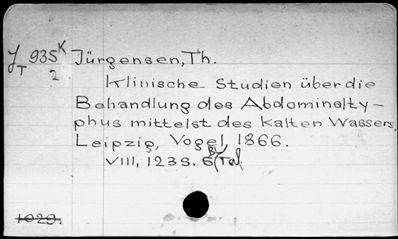 J 935 K Jürgensen, Th.
T 2
Klinische Studien über die
Behandlung des Abdominalty-
phus mittelst des Kalten Wassers.
Leipzig, Vogel 1866.
VIII, 123 S. 6 Bl. Taf.
1029.